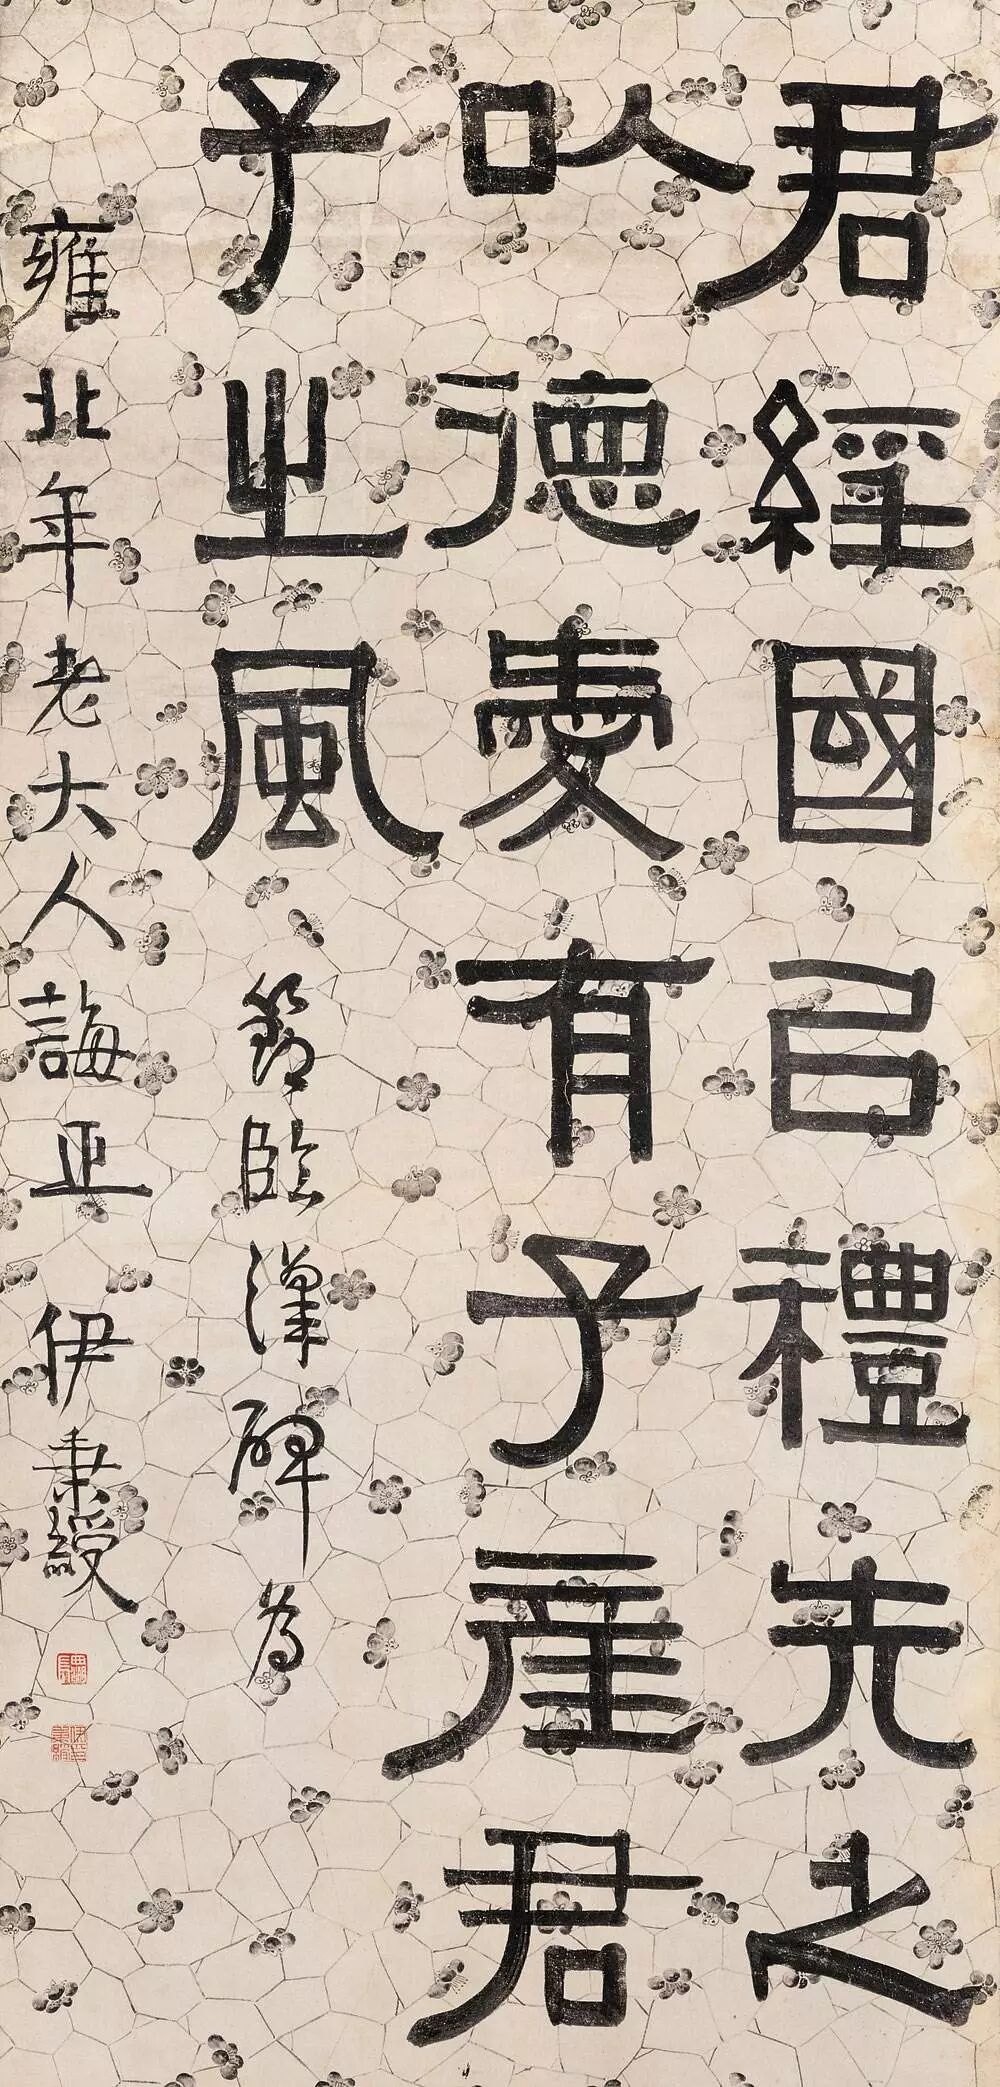 君經國㠯禮先之
以德有子產君
子之風 節臨漢碑為
雍北年老大人誨正 伊秉綬